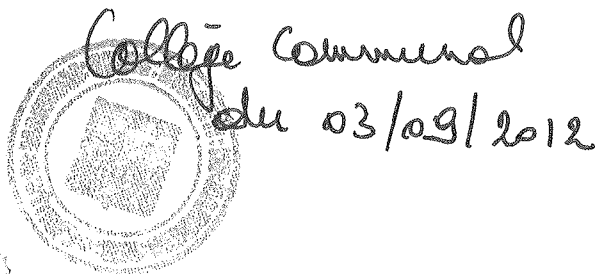 Collège Communal
du 03/09/2012